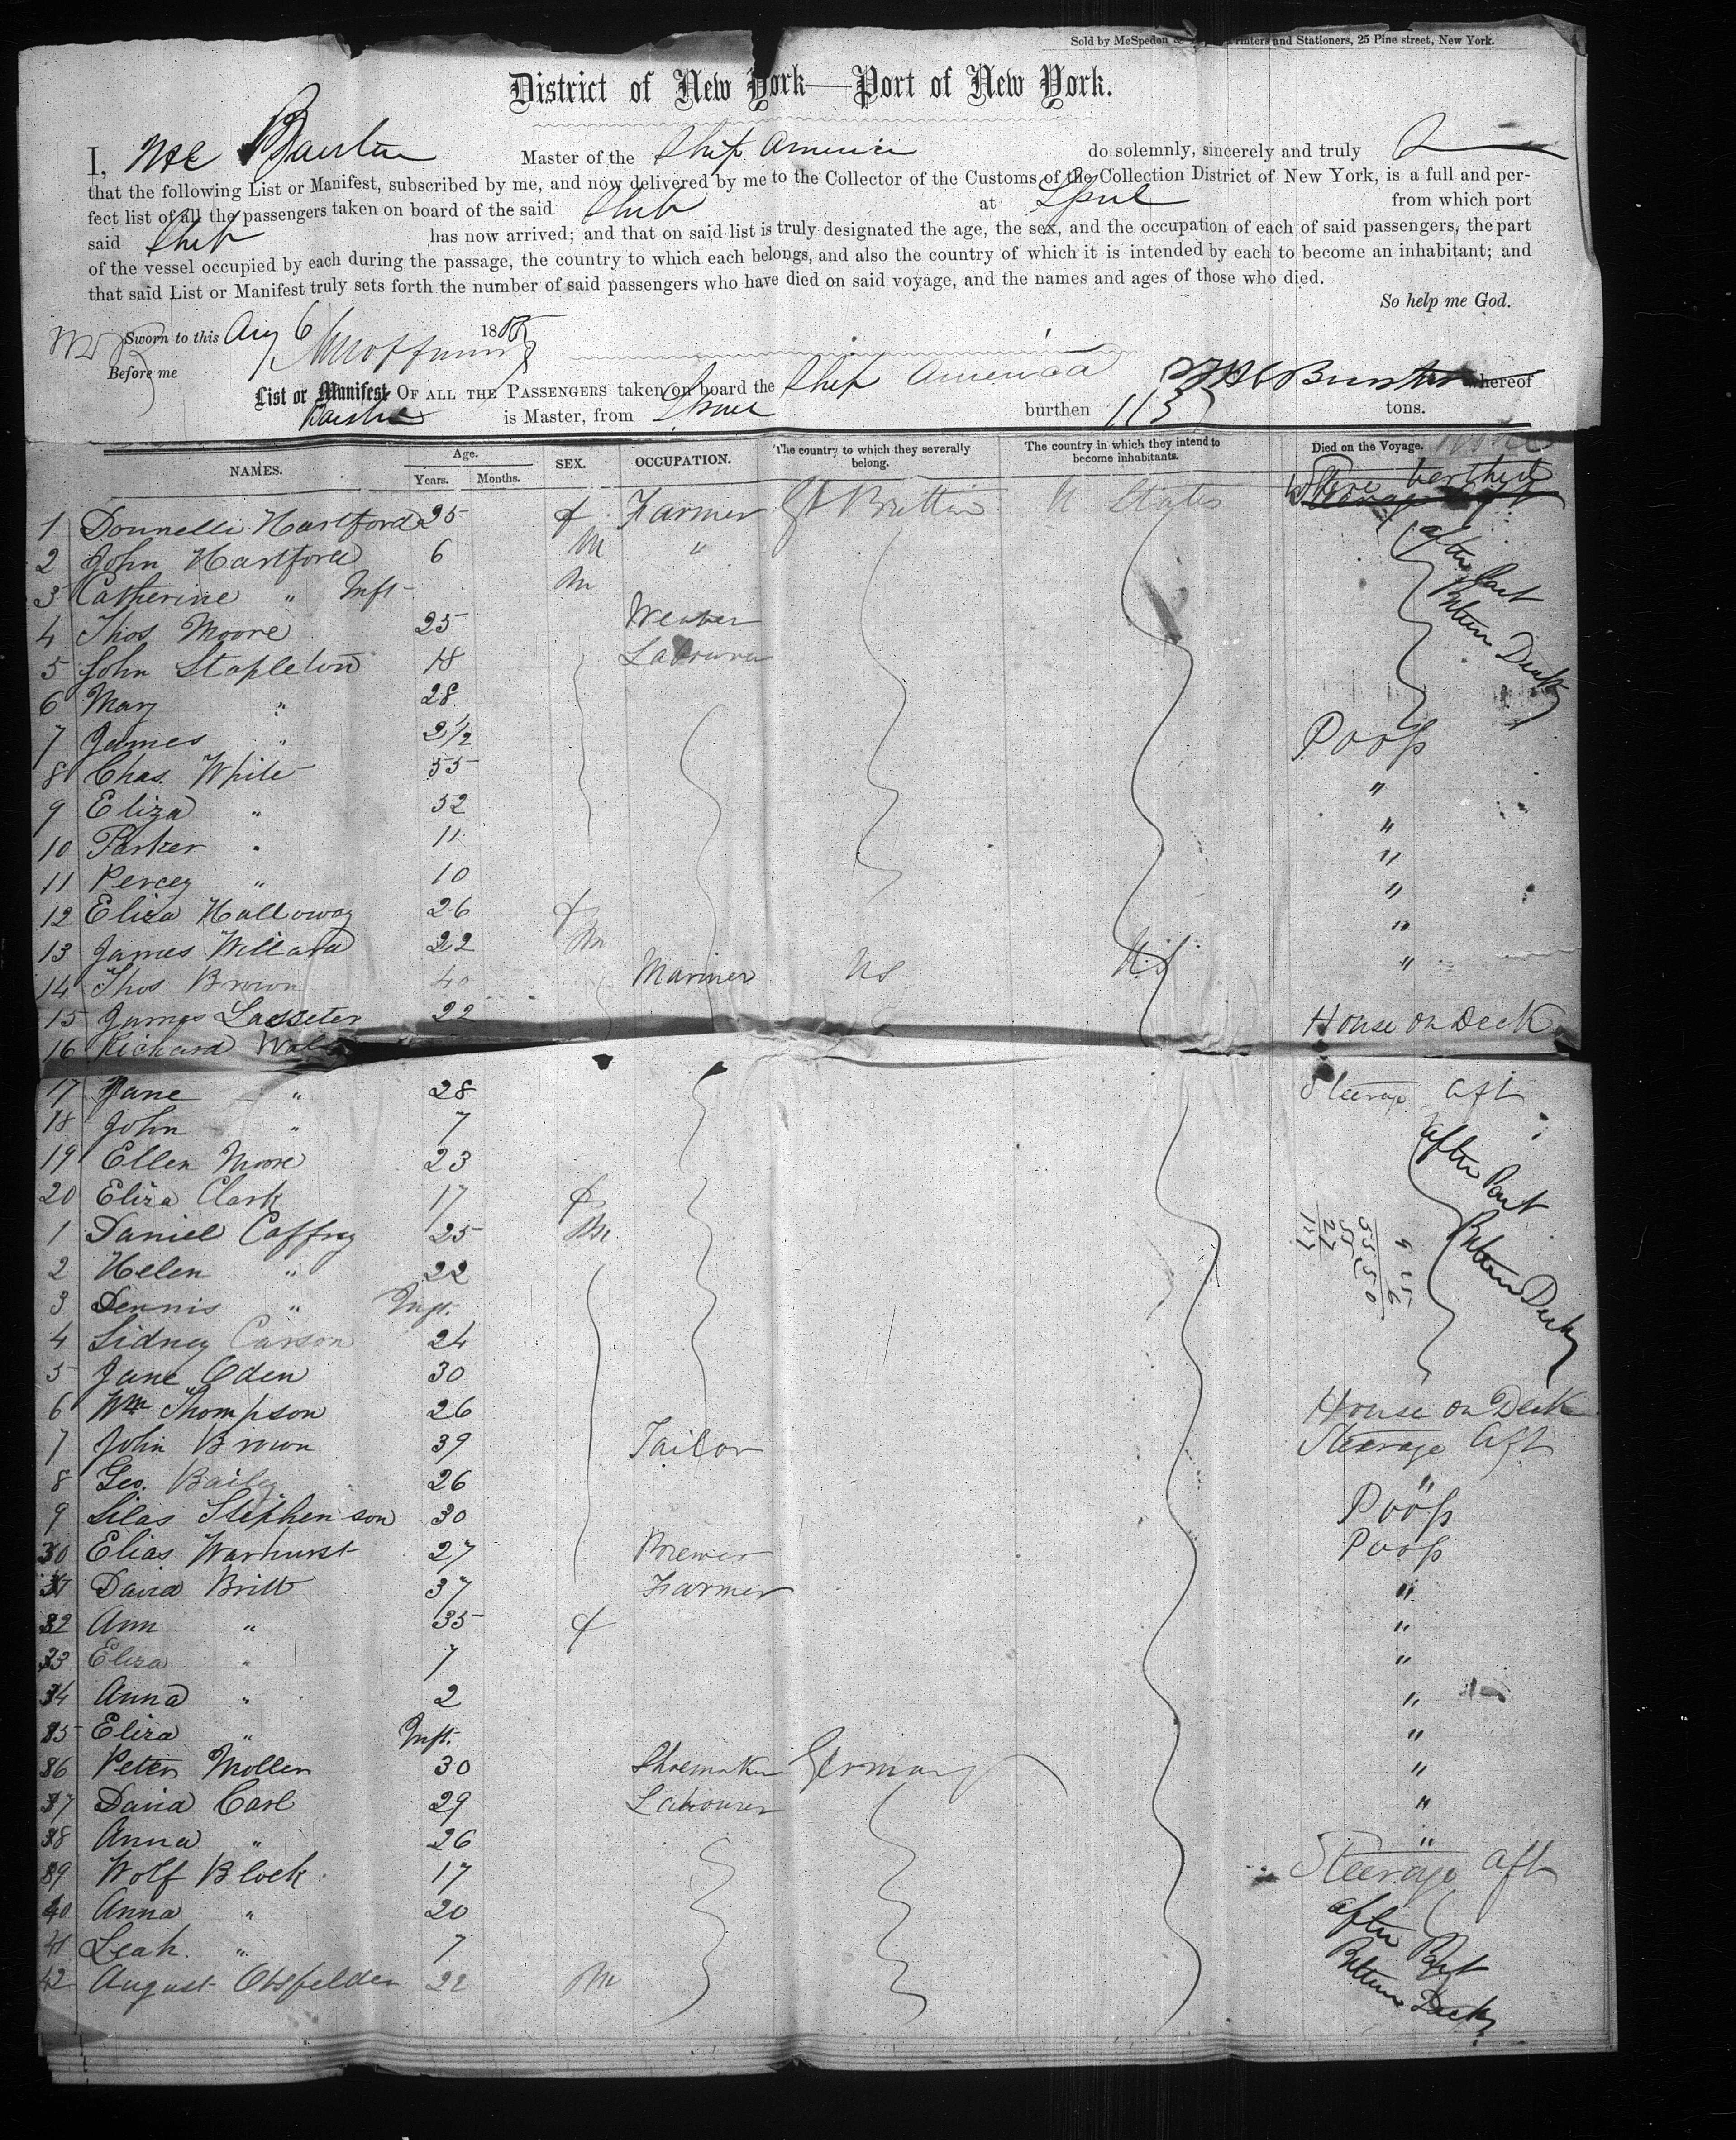 Sold by McSpedon & Printers and Stationers, 25 Pine street, New York.
District of New York—Port of New York.
I, Master of the Ship America do solemnly, sincerely and truly
that the following List or Manifest, subscribed by me, and now delivered by me to the Collector of the Customs of the Collection District of New York, is a full and per-
fect list of all the passengers taken on board of the said Ship at Lpul from which port
said Ship has now arrived; and that on said list is truly designated the age, the sex, and the occupation of each of said passengers, the part
of the vessel occupied by each during the passage, the country to which each belongs, and also the country of which it is intended by each to become an inhabitant; and
that said List or Manifest truly sets forth the number of said passengers who have died on said voyage, and the names and ages of those who died.
So help me God.
Sworn to this Aug 6 1855
Before me
List or Manifest OF ALL THE PASSENGERS taken on board the Ship America whereof
is Master, from burthen 113 tons.
NAMES. Age. Years. Months. SEX. OCCUPATION. The country to which they severally belong. The country in which they intend to become inhabitants. Died on the Voyage.
Where berthed
1 Hartford 25 f Farmer Gt Brittin U States
2 John Hartford 6 M "
3 Catherine " Inft M
4 Thos Moore 25 Weaver
5 John Stapleton 18 Labourer
6 Mary " 28
After Part Betwn Decks
7 James " 2½ Poop
8 Chas. White 55 "
9 Eliza " 52 "
10 Parker " 11 "
11 Percey " 10 "
12 Eliza Halloway 26 f "
13 James Willard 22 M "
14 Thos Brown 40 Mariner US US
15 James Lasseter 22 House on Deck
16 Richard
17 Jane " 28 Steerage aft
18 John " 7
19 Ellen Moore 23
20 Eliza Clark 17 f
1 Daniel Caffrey 25 M
2 Helen " 22
3 Dennis " Inft.
After Part Betwn Decks
4 Sidney Carson 24
5 Jane Oden 30
6 Wm Thompson 26 House on Deck
7 John Brown 39 Tailor Steerage Aft
8 Geo. Bailey 26 "
9 Silas Stephenson 30 Poop
30 Elias Warhurst 27 Brewer Poop
31 David Britt 37 Farmer "
32 Ann " 35 f "
33 Eliza " 7 "
34 Anna " 2 "
35 Eliza " Inft. "
36 Peter Moller 30 Shoemaker Germany "
37 David Carl 29 Labourer "
38 Anna " 26 "
39 Wolf Block 17 Steerage aft
40 Anna " 20
41 Leah " 7
After Part Betwn Decks
42 August Obsfelder 22 M